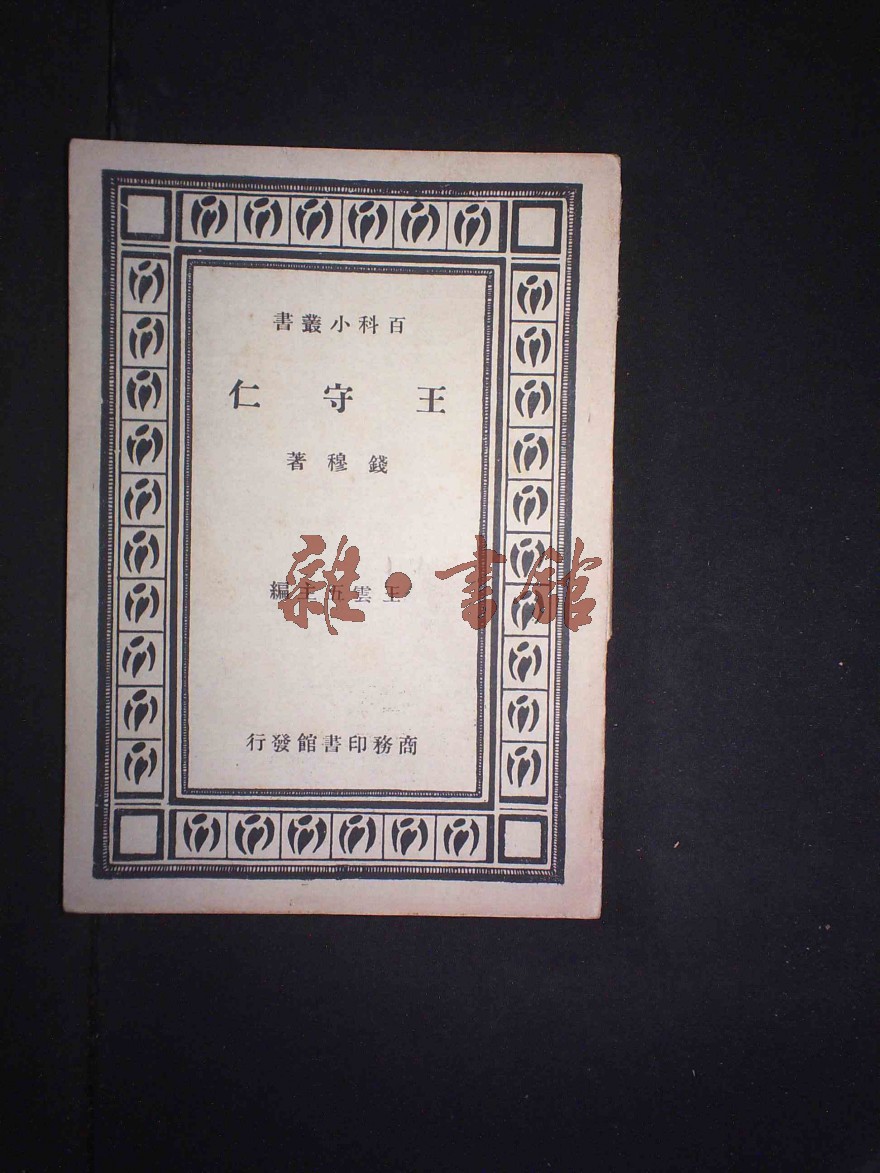 百科小叢書
王守仁
錢穆著
王雲五主編
雜·書館
商務印書館發行